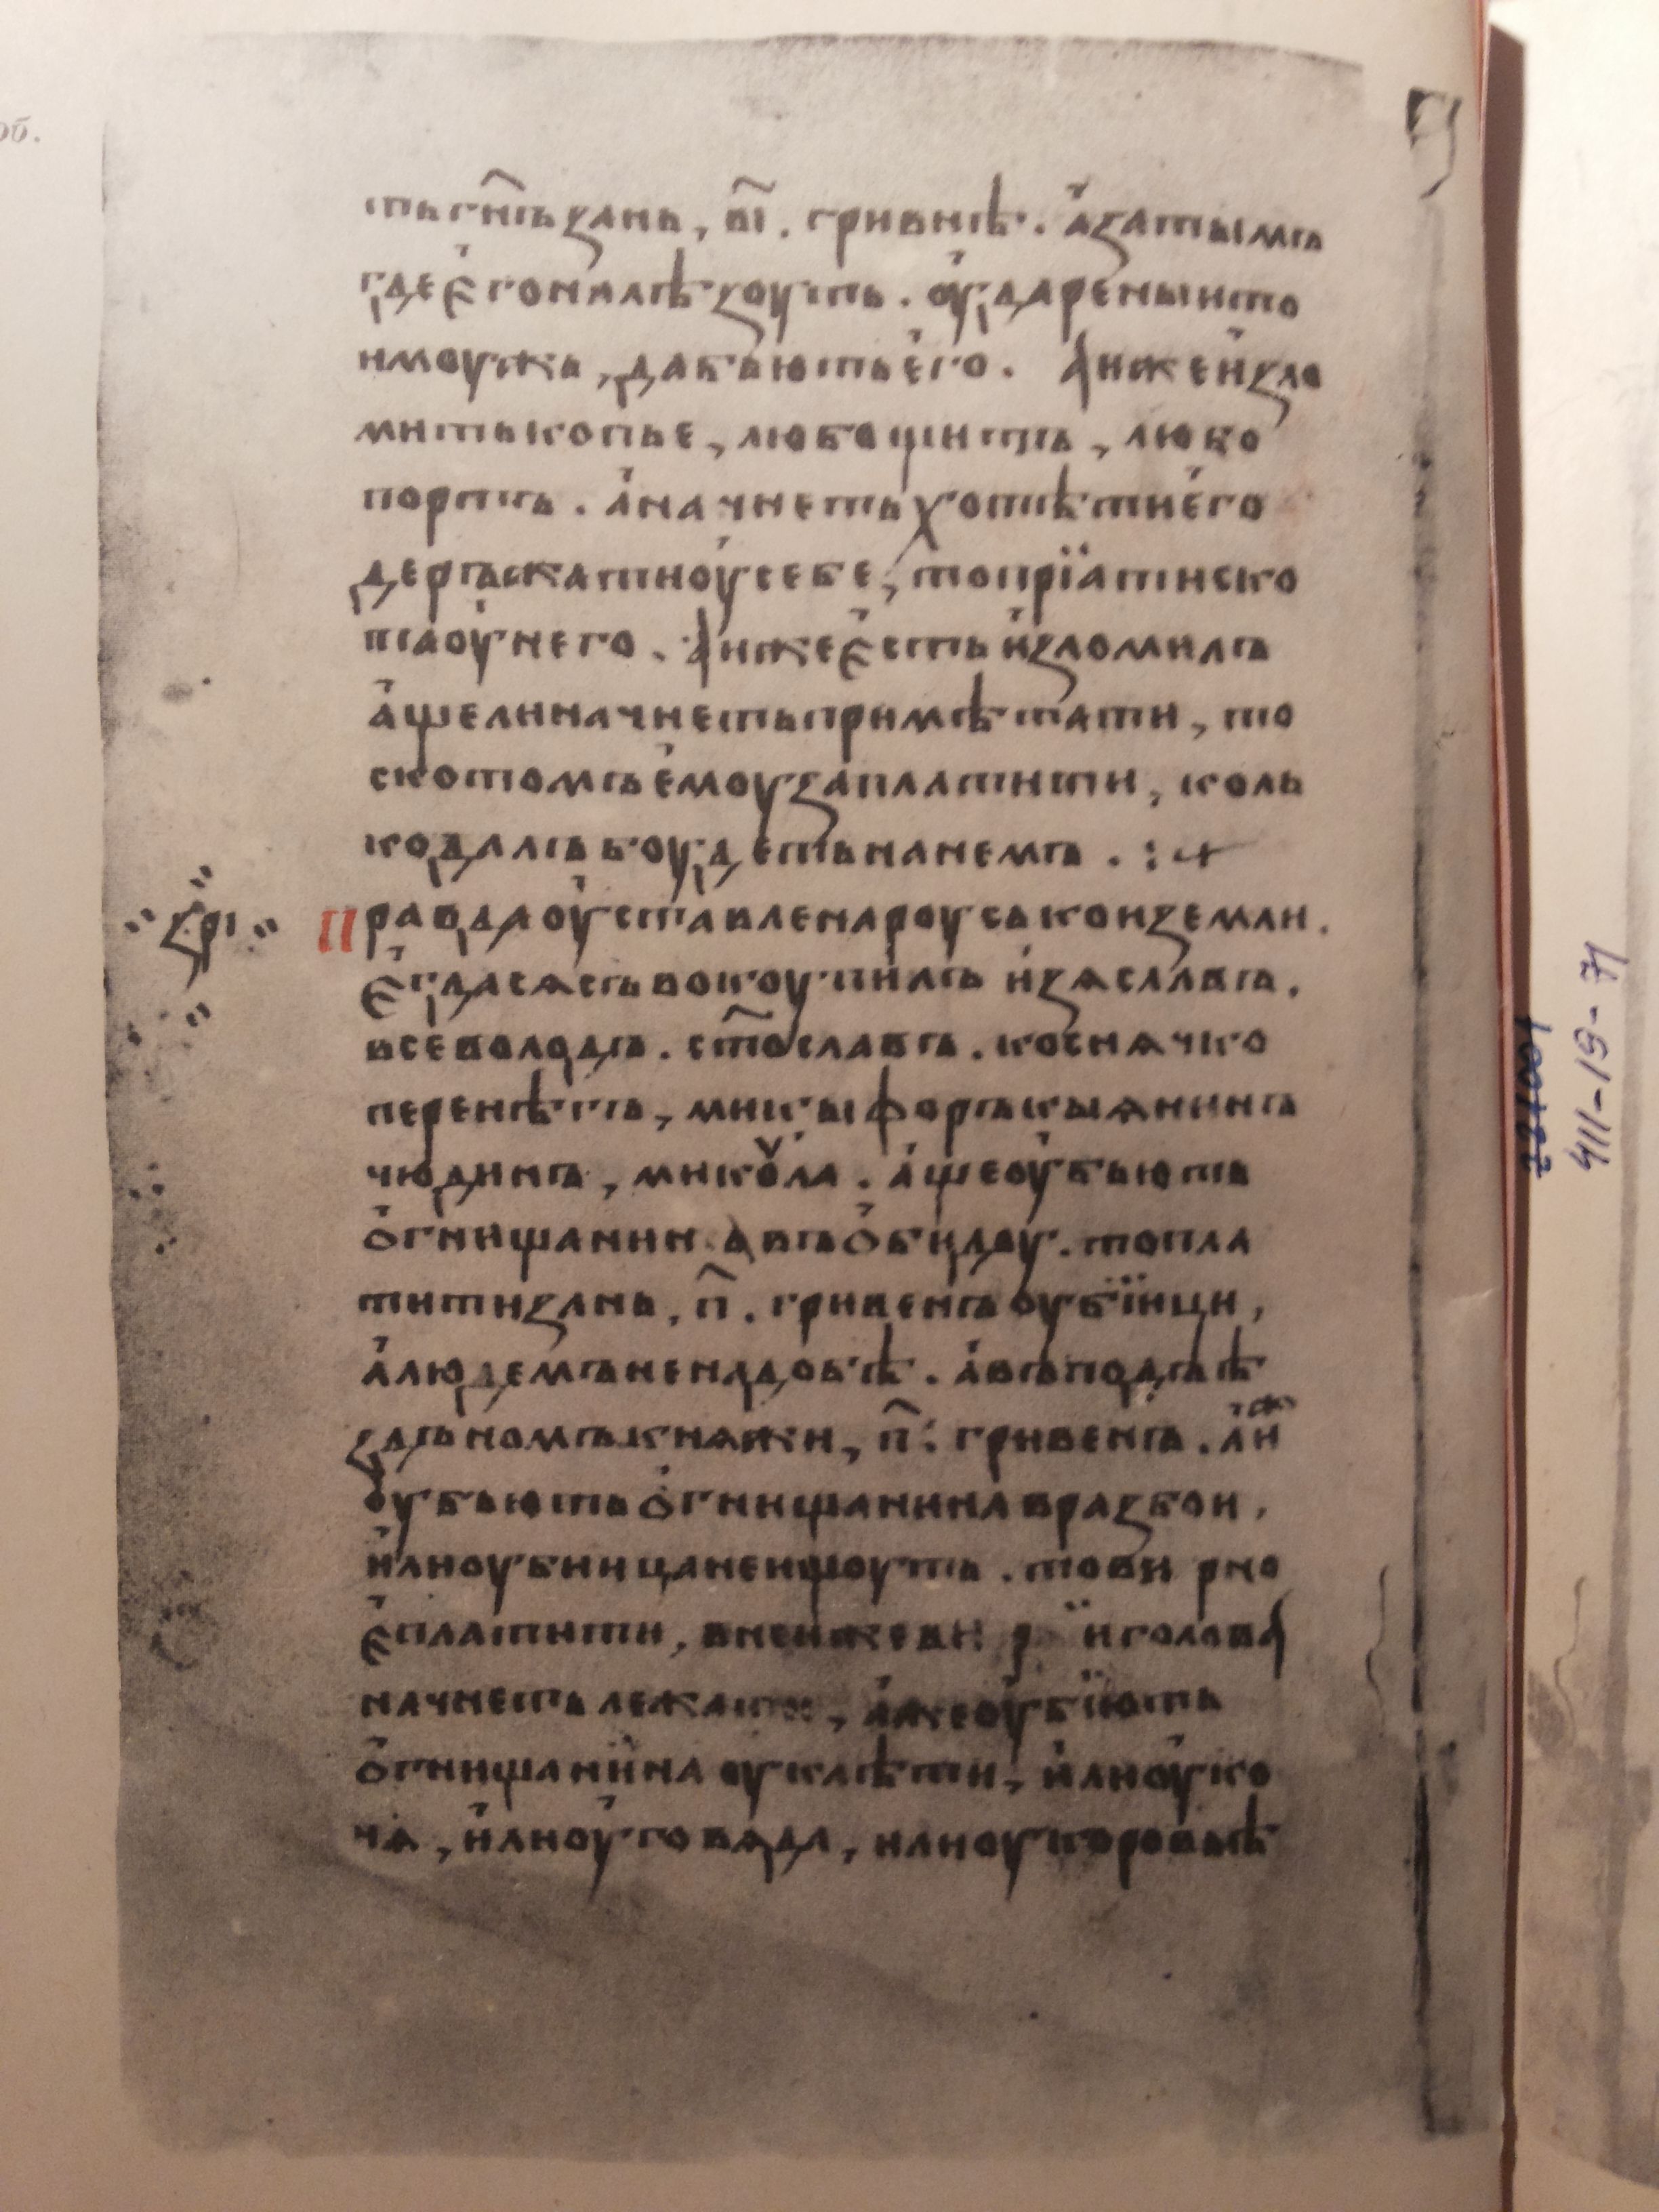 об.
ть гн҃ъ за нь, в҃і. гривнѣ. а҆ за тымъ
гдѣ є҆го налѣзоуть. оу҆дареныи то
и моужь, да бьють е҆го. А иже и҆зло
мить копье, любо щитъ, любо
портъ. а҆ начнеть хотѣти е҆го
деръжати оу҆ себе, то прїати ско
та оу҆ него. А иже є҆сть и҆зломилъ
а҆ще ли начнеть примѣтати, то
скотомъ е҆моу заплатити, коль
ко далъ боудеть на немъ. :+
" зрі "
Правда оу҆ставлена роуськои земли.
є҆гда сѧ съвокоупилъ и҆зѧславъ.
всеволодъ. ст҃ославъ. коснѧчко
перенѣгъ, микыфоръ кыѧнинъ
чюдинъ, микоула. а҆ще оу҆бьють
о҆гнищанин а въ о҆бидоу. то пла
тити за нь, п҃. гривенъ оубїици,
а҆ людемъ не надобѣ. а҆ въ подъѣ
здъномъ кнѧжи, п҃. гривенъ. а҆иж
оубьють о҆гнищанина в разбои.
и҆ли оубиица не ищоуть. то вирно
є҆ платити, в неиже ви р ї и голова
начнеть лежати, а҆же оу҆бїють
о҆гнищанїна оу клѣти, и҆ли оу҆ ко
нѧ, и҆ли оу҆ говѧда, или оу коровьѣ
411-19-71